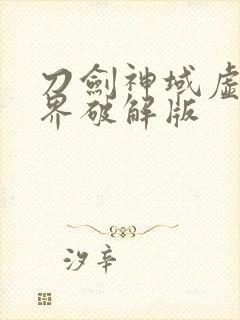 刀劍神域虛
界破解版
汐辛